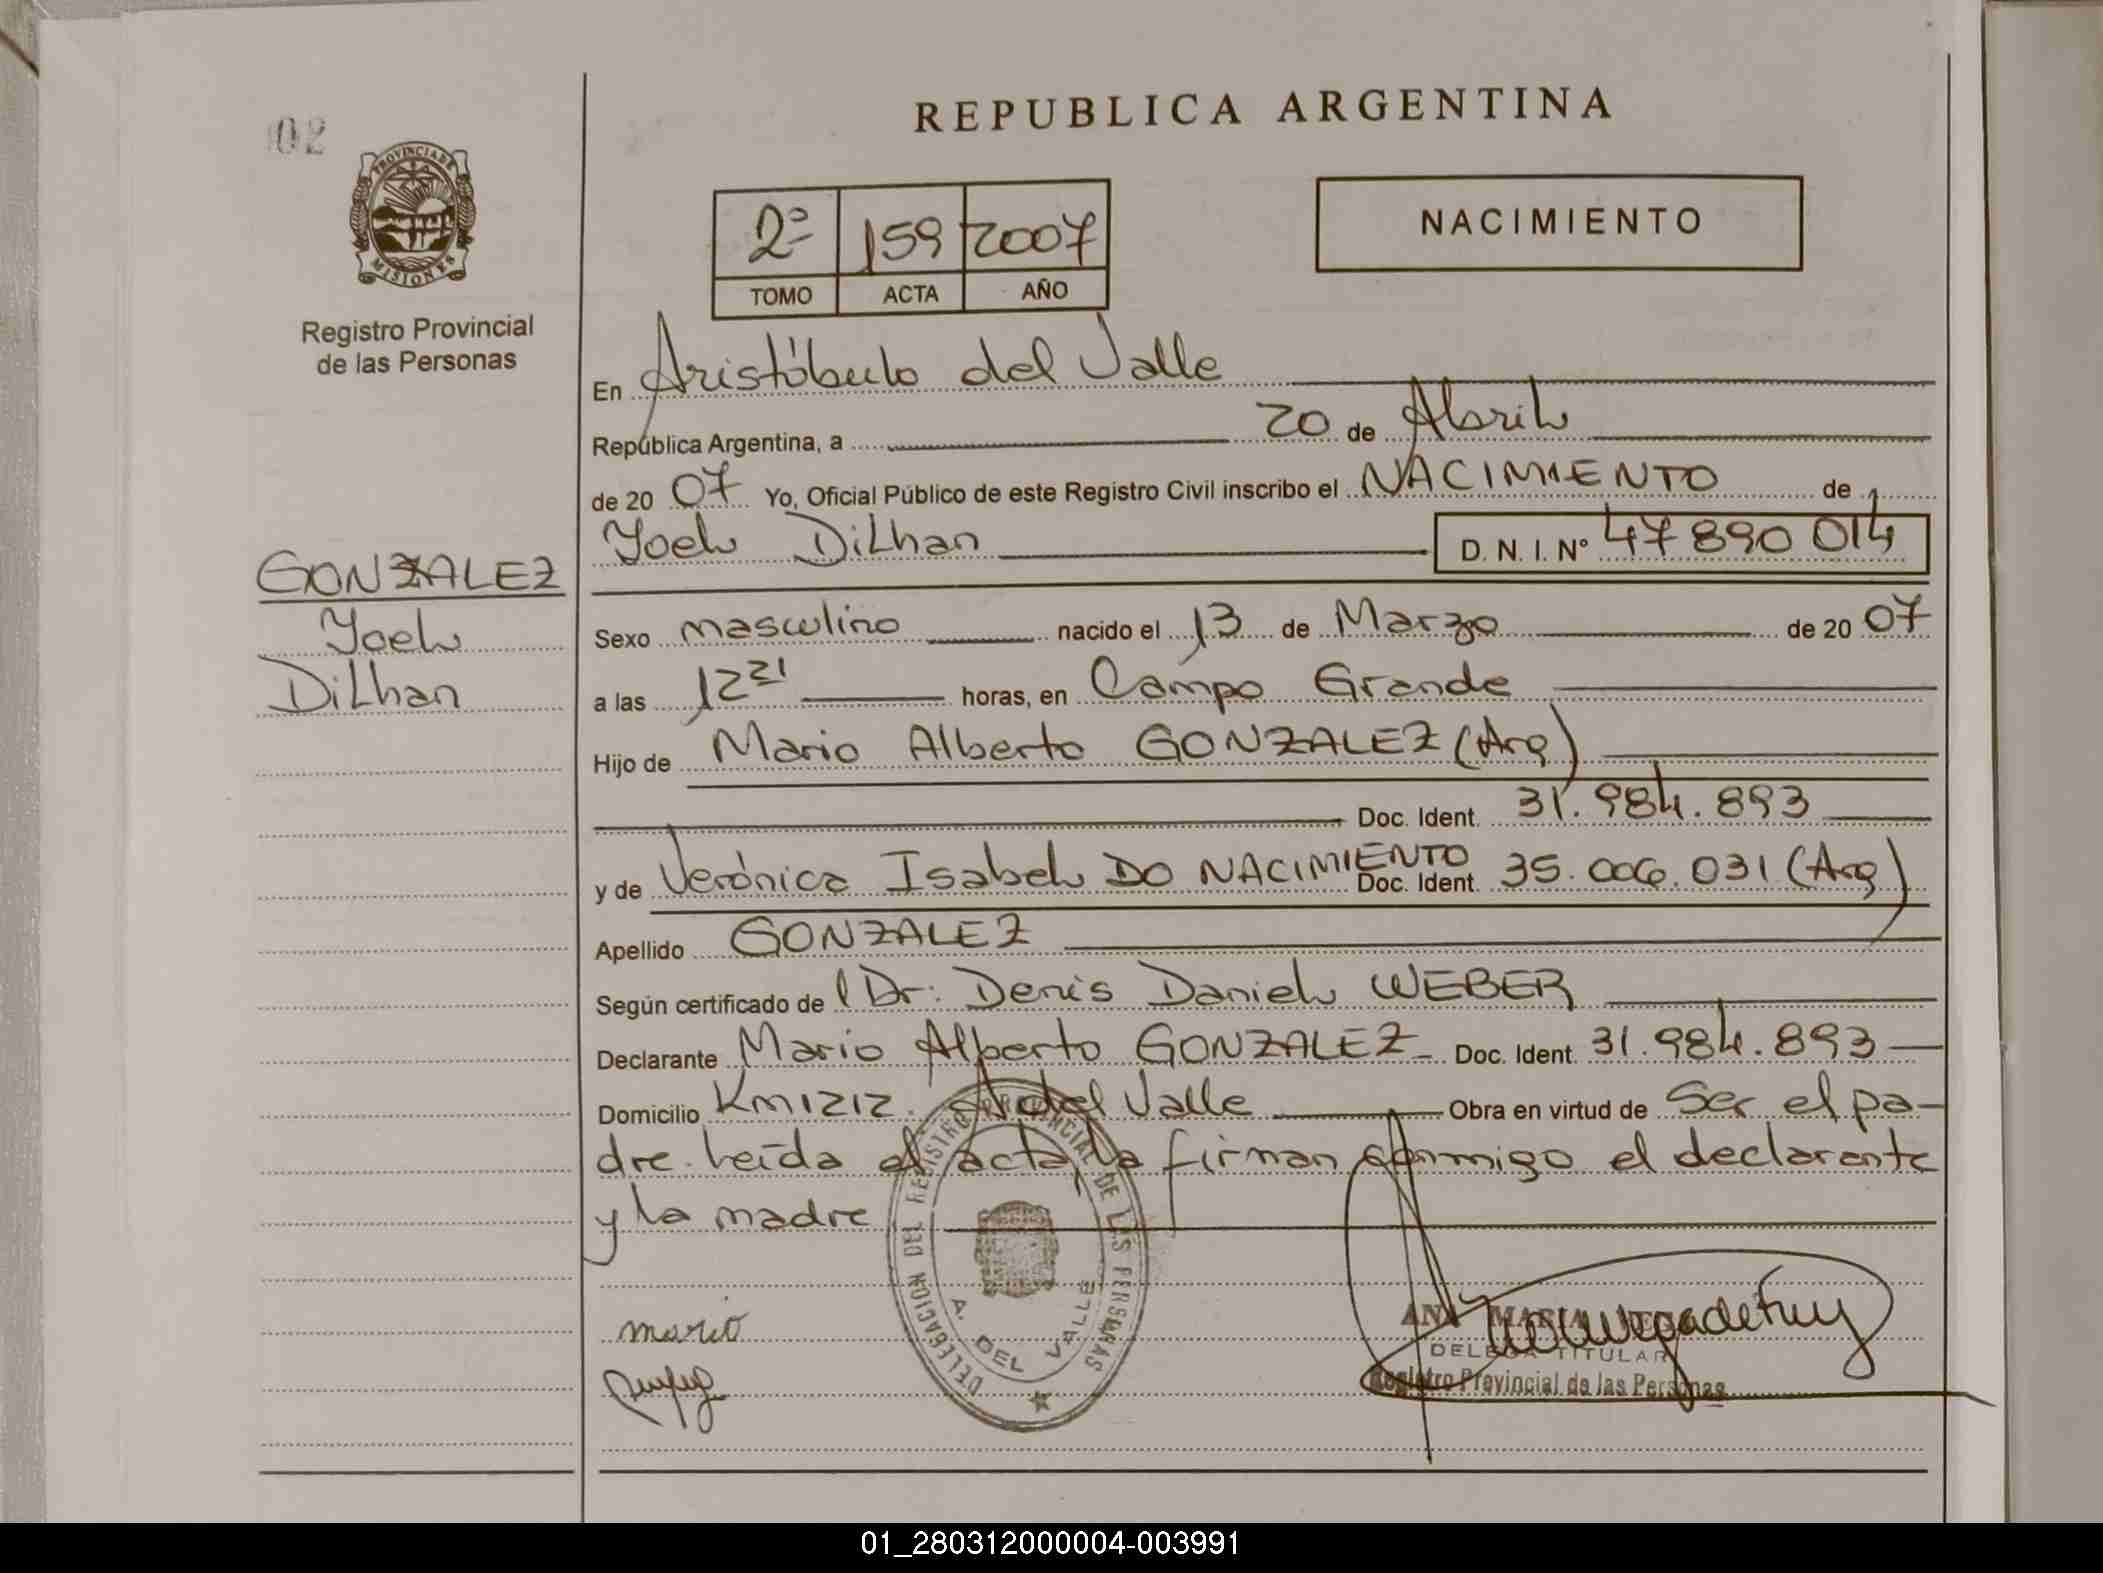 02
PROVINCIA DE
MISIONES
Registro Provincial
de las Personas
REPUBLICA ARGENTINA
2º 159 2007
TOMO ACTA AÑO
NACIMIENTO
En Aristóbulo del Valle
República Argentina, a 20 de Abril
de 20 07 Yo, Oficial Público de este Registro Civil inscribo el NACIMIENTO de
Yoel Dilhan D. N. I. Nº 47 890 014
GONZALEZ
Yoel
Dilhan
Sexo masculino nacido el 13 de Marzo de 20 07
a las 12 21 horas, en Campo Grande
Hijo de Mario Alberto GONZALEZ (Arg)
Doc. Ident. 31.984.893
y de Verónica Isabel DO NACIMIENTO Doc. Ident. 35.006.031 (Arg)
Apellido GONZALEZ
Según certificado de l Dr: Denis Daniel WEBER
Declarante Mario Alberto GONZALEZ Doc. Ident. 31.984.893
Domicilio Km 1212. A del Valle Obra en virtud de Ser el pa-
dre. Leída el acta, la firman conmigo el declarante
y la madre
DELEGACION DEL REGISTRO PROVINCIAL DE LAS PERSONAS
A. DEL VALLE
mario
ANA MARIA
DELEGADA TITULAR
Registro Provincial de las Personas
01_280312000004-003991